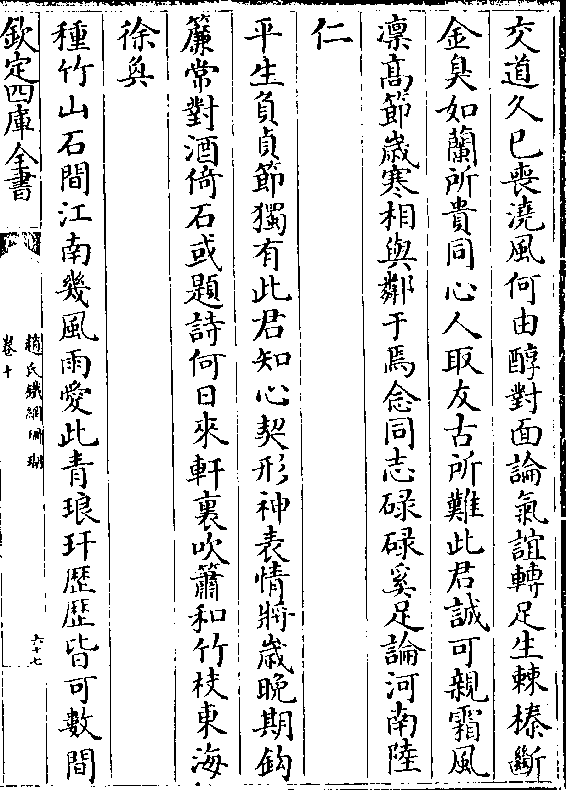 交道久已喪澆風何由醇對面論氣誼轉足生棘榛斷
金臭如蘭所貴同心人取友古所難此君誠可親霜風
凛高節歲寒相與鄰于焉念同志碌碌奚足論河南陸
仁
平生負貞節獨有此君知心契形神表情將歲晚期鈎
簾常對酒倚石或題詩何日來軒裏吹簫和竹枝東海
徐奐
種竹山石間江南幾風雨愛此青琅玕歷歷皆可數間
欽定四庫全書
趙氏鐵網珊瑚
卷十
六十七